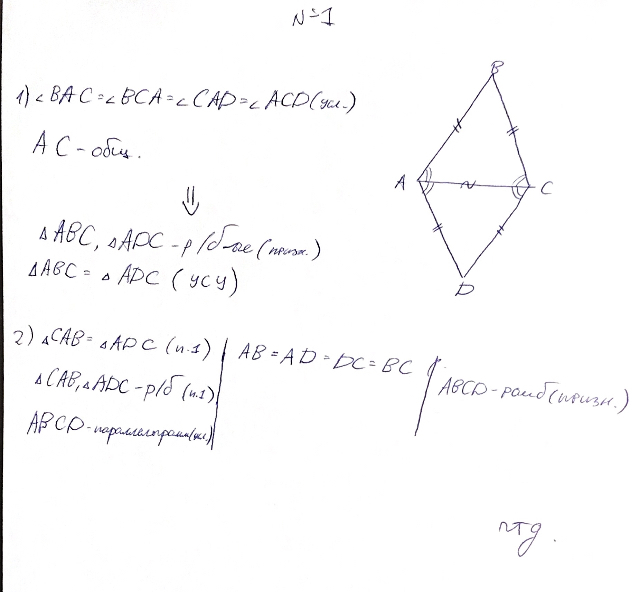 №1
1) ∠BAC=∠BCA=∠CAD=∠ACD(усл.)
AC-общ.
⇓
△ABC, △ADC-р/б-ые(призн.)
△ABC=△ADC (УСУ)
B
A
C
D
2) △CAB=△ADC (п.1)
△CAB,△ADC-р/б(п.1)
ABCD-параллелограмм(усл.)
AB=AD=DC=BC
ABCD-ромб(призн.)
чтд.